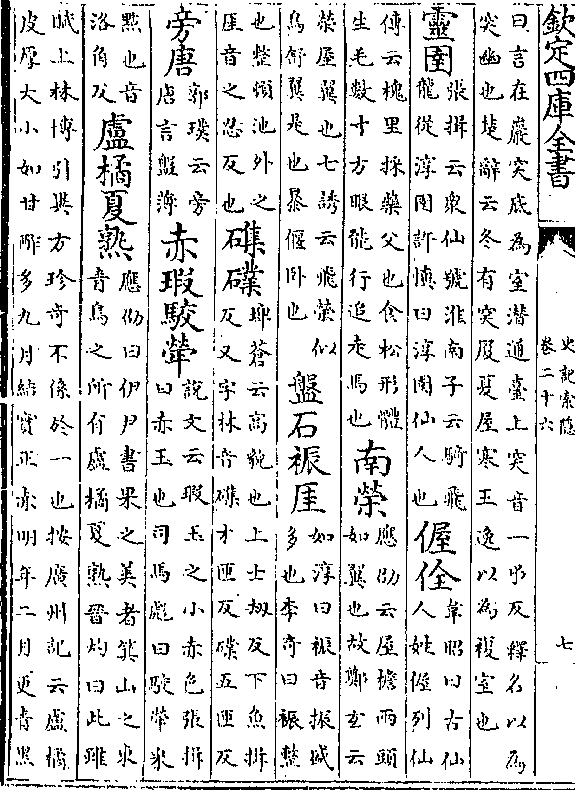 欽定四庫全書
史記索隱
卷二十六
七
曰言在巖突底為室潛通臺上突音一吊反釋名以為
突幽也楚辭云冬有突厦夏屋寒王逸以為複室也
靈圉
張揖云衆仙號淮南子云騎飛
龍從淳圉許慎曰淳圉仙人也
偓佺
韋昭曰古仙
人姓偓列仙
傳云槐里採藥父也食松形體
生毛數寸方眼能行追走馬也
南榮
應劭云屋檐兩頭
如翼也故鄭玄云
榮屋翼也七誘云飛榮似
鳥舒翼是也暴偃卧也
盤石裖厓
如淳曰裖音振盛
多也李奇曰裖整
也整頓池外之
厓音之忍反也
磼礏
埤蒼云高貌也上士劫反下魚揖
反又字林音磼才匝反礏五匝反
旁唐
郭璞云旁
唐言盤薄
赤瑕駮犖
說文云瑕玉之小赤色張揖
曰赤玉也司馬彪曰駮犖采
點也音
洛角反
盧橘夏熟
應劭曰伊尹書果之美者箕山之東
青鳥之所有盧橘夏熟晉灼曰此雖
賦上林博引異方珍奇不係於一也按廣州記云盧橘
皮厚大小如甘酢多九月結實正赤明年二月更青黑